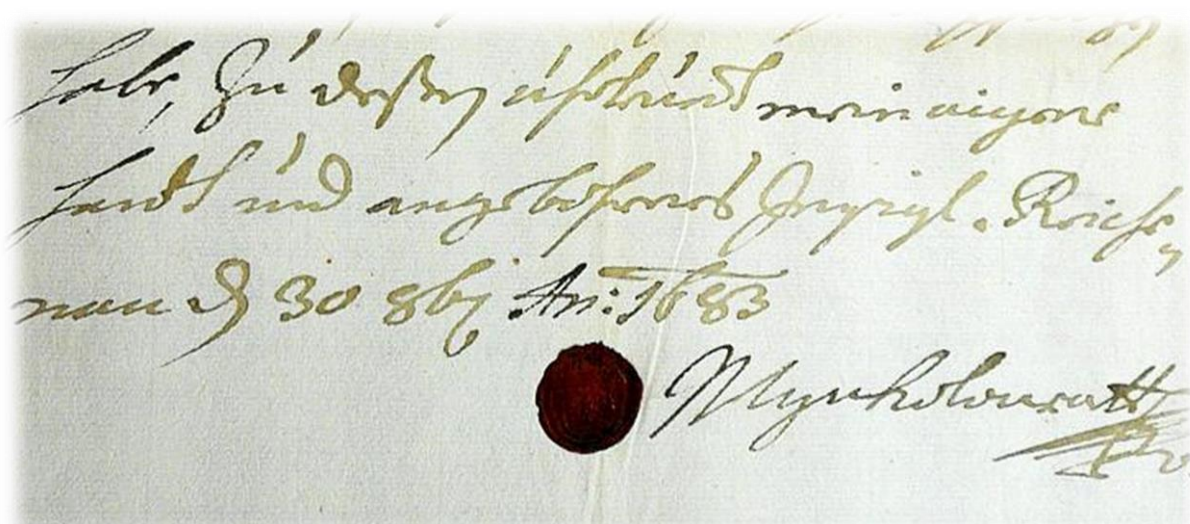 habe, Zu deßen uhrkundt mein aigene
handt und angebohrnes Insigl. Reichs,
nau d 30 8bj An: 1683